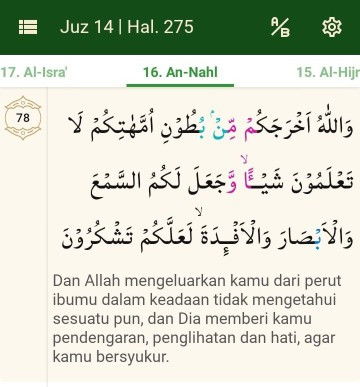 Juz 14 | Hal. 275
A/B
17. Al-Isra'
16. An-Nahl
15. Al-Hijr
78
وَاللّٰهُ اَخْرَجَكُمْ مِّنْۢ بُطُوْنِ اُمَّهٰتِكُمْ لَا
تَعْلَمُوْنَ شَيْـًٔاۙ وَّجَعَلَ لَكُمُ السَّمْعَ
وَالْاَبْصَارَ وَالْاَفْـِٕدَةَ ۙ لَعَلَّكُمْ تَشْكُرُوْنَ
Dan Allah mengeluarkan kamu dari perut
ibumu dalam keadaan tidak mengetahui
sesuatu pun, dan Dia memberi kamu
pendengaran, penglihatan dan hati, agar
kamu bersyukur.